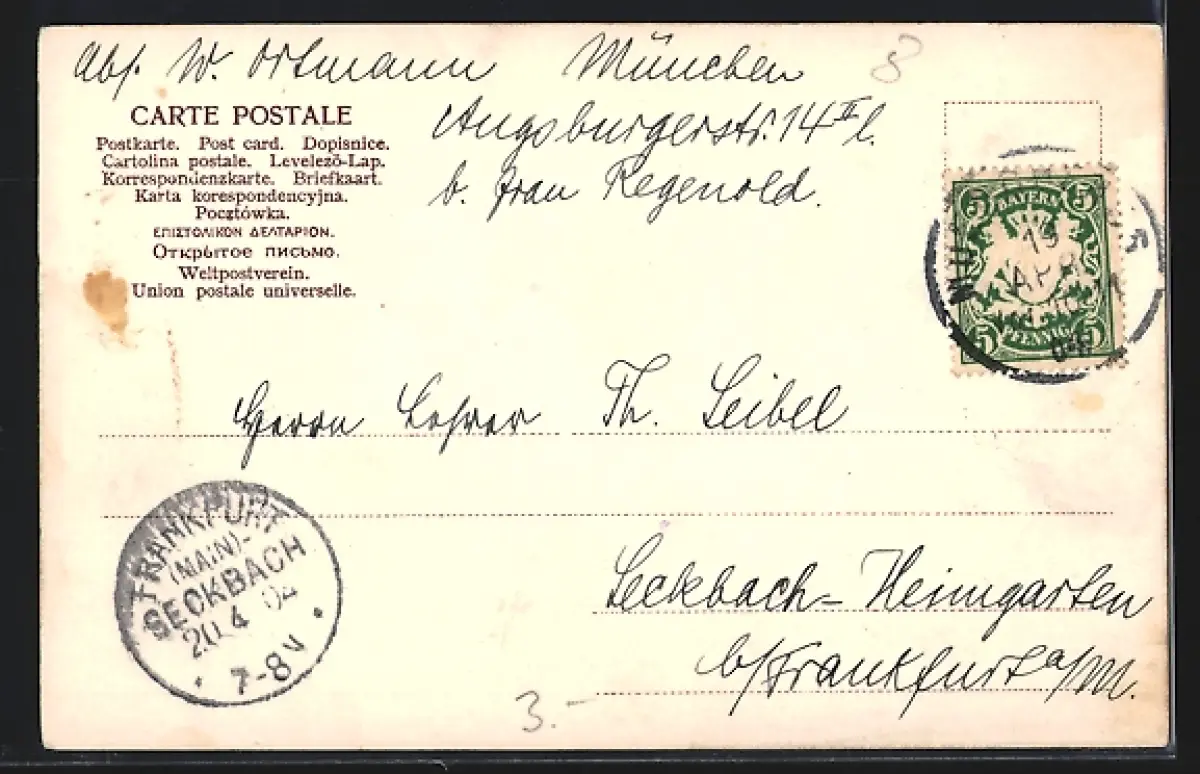 Abs. W. Ortmann München 8
Augsburgerstr. 14 II l.
b. Frau Regenold.
CARTE POSTALE
Postkarte. Post card. Dopisnice.
Cartolina postale. Levelező-Lap.
Korrespondenzkarte. Briefkaart.
Karta korespondencyjna.
Pocztówka.
ΕΠΙΣΤΟΛΙΚΟΝ ΔΕΛΤΑΡΙΟΝ.
Открытое письмо.
Weltpostverein.
Union postale universelle.
5 BAYERN 5
5 PFENNIG 5
19
APR
Herrn Lehrer Th. Seibel
Seckbach-Heimgarten
b/Frankfurt a/M.
FRANKFURT
(MAIN)-
SECKBACH
20 4 04
7-8 V
3.-